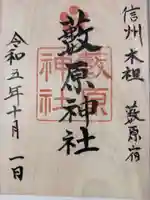 信州 木祖 藪原宿
藪原神社
藪原
神社
令和五年十月一日